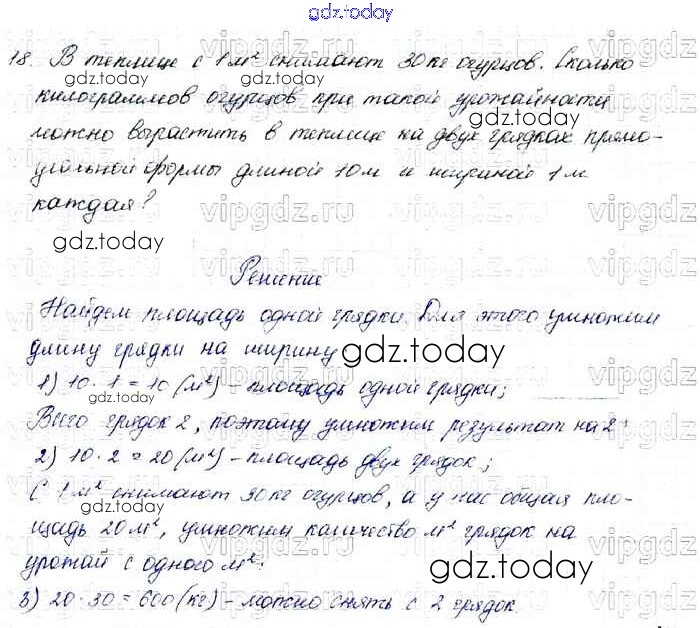 gdz.today
18. В теплице с 1 м² снимают 30 кг огурцов. Сколько
gdz.today
килограммов огурцов при такой урожайности
gdz.today
можно вырастить в теплице на двух грядках прямо-
угольной формы длиной 10 м и шириной 1 м
каждая?
vipgdz.ru
gdz.today
Решение
Найдем площадь одной грядки. Для этого умножим
длину грядки на ширину
gdz.today
1) 10 · 1 = 10 (м²) - площадь одной грядки;
gdz.today
Всего грядок 2, поэтому умножим результат на 2:
2) 10 · 2 = 20 (м²) - площадь двух грядок;
С 1 м² снимают 30 кг огурцов, а у нас общая пло-
gdz.today
щадь 20 м², умножим количество м² грядок на
урожай с одного м²:
gdz.today
3) 20 · 30 = 600 (кг) - можно снять с 2 грядок